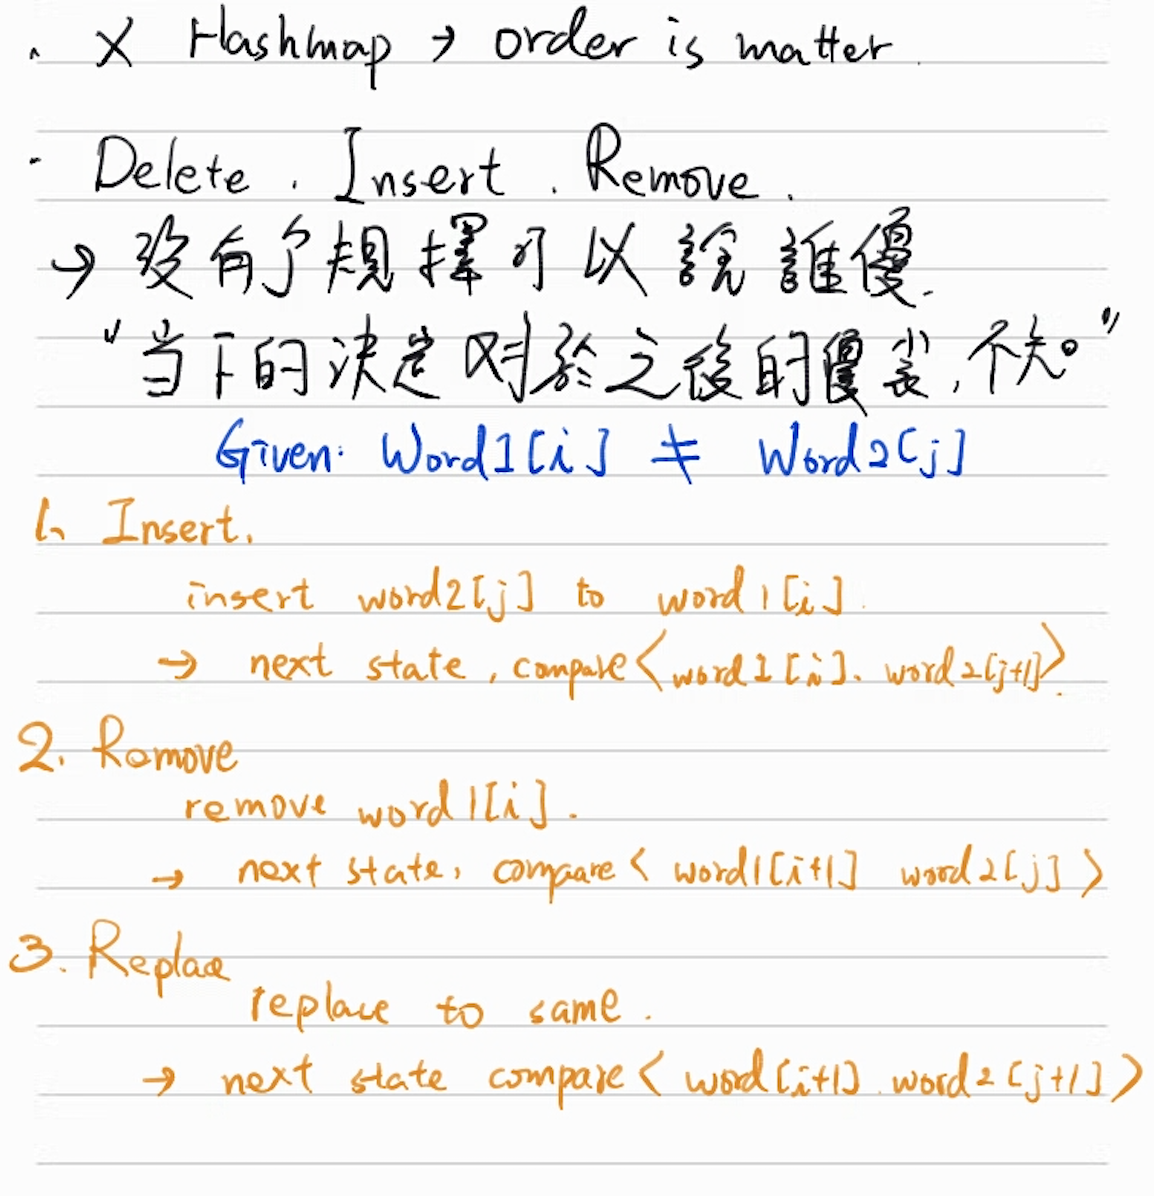 · X Hashmap → order is matter.
· Delete. Insert. Remove.
→ 沒有了規擇可以說誰優.
"当下的決定対於之後的優劣,不知。"
Given: Word1[i] ≠ Word2[j]
1. Insert.
insert word2[j] to word1[i].
→ next state, compare<word1[i]. word2[j+1]>.
2. Remove
remove word1[i].
→ next state, compare< word1[i+1] word2[j] >
3. Replace
replace to same.
→ next state compare< word[i+1]. word2[j+1] >